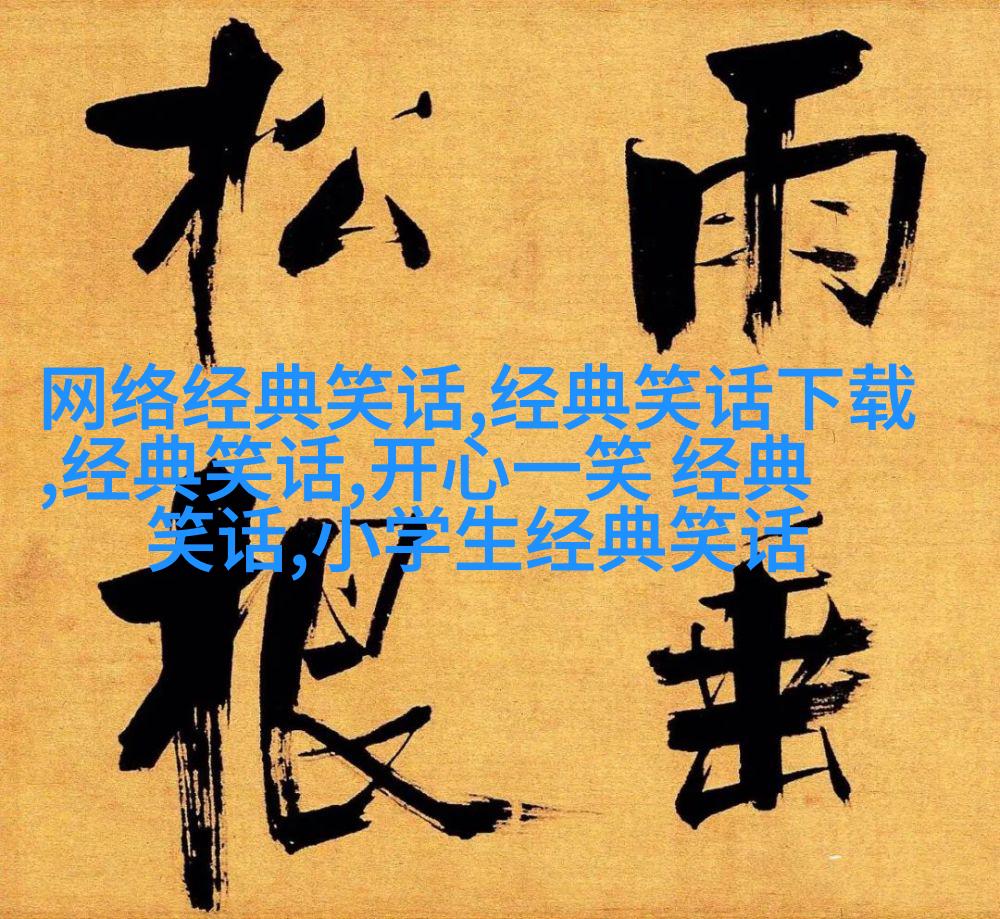 雨垂
松根
网络经典笑话,经典笑话下载
,经典笑话,开心一笑 经典
笑话,小学生经典笑话